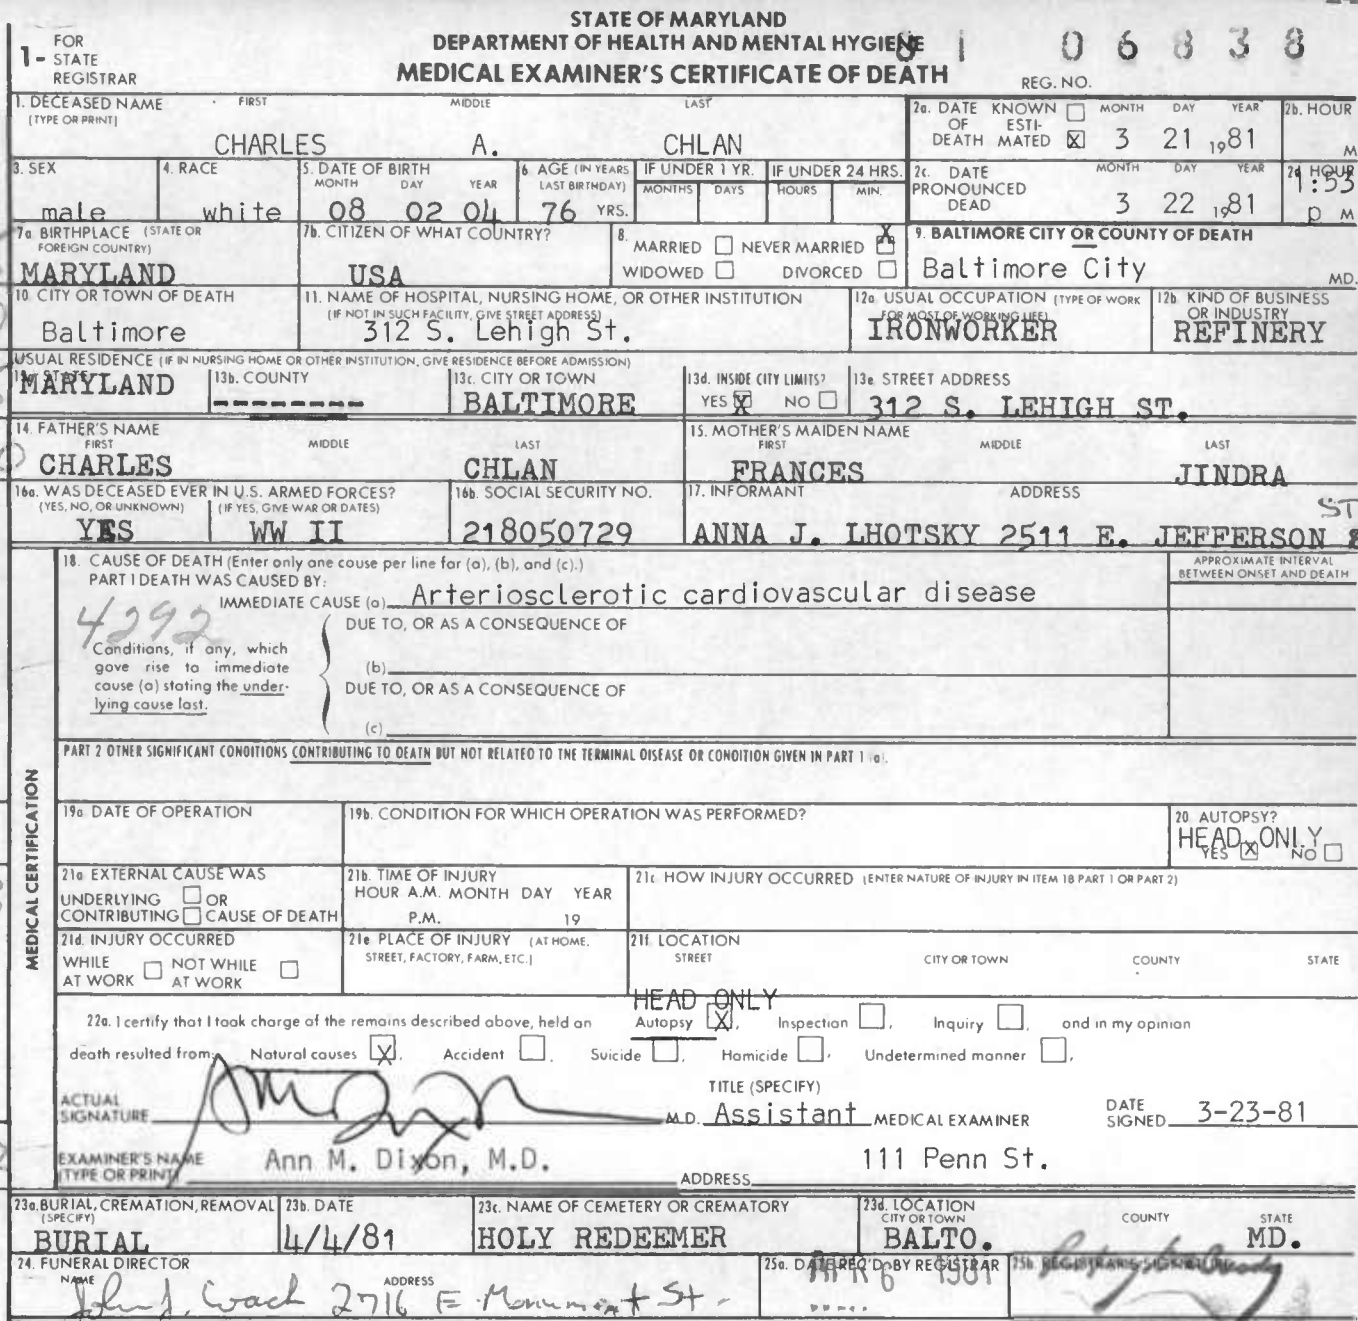 STATE OF MARYLAND
DEPARTMENT OF HEALTH AND MENTAL HYGIENE
MEDICAL EXAMINER'S CERTIFICATE OF DEATH
1- FOR STATE REGISTRAR
REG. NO. 81 06838
1. DECEASED NAME (TYPE OR PRINT) FIRST MIDDLE LAST
CHARLES A. CHLAN
2a. DATE OF DEATH KNOWN ☐ ESTI-MATED ☒ MONTH DAY YEAR
3 21 1981
2b. HOUR M
3. SEX
male
4. RACE
white
5. DATE OF BIRTH MONTH DAY YEAR
08 02 04
6. AGE (IN YEARS LAST BIRTHDAY)
76 YRS.
IF UNDER 1 YR. MONTHS DAYS
IF UNDER 24 HRS. HOURS MIN.
2c. DATE PRONOUNCED DEAD MONTH DAY YEAR
3 22 1981
2d HOUR
1:53 p M
7a. BIRTHPLACE (STATE OR FOREIGN COUNTRY)
MARYLAND
7b. CITIZEN OF WHAT COUNTRY?
USA
8. MARRIED ☐ NEVER MARRIED ☒
WIDOWED ☐ DIVORCED ☐
9. BALTIMORE CITY OR COUNTY OF DEATH
Baltimore City MD.
10. CITY OR TOWN OF DEATH
Baltimore
11. NAME OF HOSPITAL, NURSING HOME, OR OTHER INSTITUTION
(IF NOT IN SUCH FACILITY, GIVE STREET ADDRESS)
312 S. Lehigh St.
12a USUAL OCCUPATION (TYPE OF WORK FOR MOST OF WORKING LIFE)
IRONWORKER
12b. KIND OF BUSINESS OR INDUSTRY
REFINERY
USUAL RESIDENCE (IF IN NURSING HOME OR OTHER INSTITUTION, GIVE RESIDENCE BEFORE ADMISSION)
13a. STATE
MARYLAND
13b. COUNTY
--------
13c. CITY OR TOWN
BALTIMORE
13d. INSIDE CITY LIMITS?
YES ☒ NO ☐
13e STREET ADDRESS
312 S. LEHIGH ST.
14. FATHER'S NAME FIRST MIDDLE LAST
CHARLES CHLAN
15. MOTHER'S MAIDEN NAME FIRST MIDDLE LAST
FRANCES JINDRA
16a. WAS DECEASED EVER IN U.S. ARMED FORCES?
(YES, NO, OR UNKNOWN) (IF YES, GIVE WAR OR DATES)
YES WW II
16b. SOCIAL SECURITY NO.
218050729
17. INFORMANT ADDRESS
ANNA J. LHOTSKY 2511 E. JEFFERSON ST
18. CAUSE OF DEATH (Enter only one cause per line for (a), (b), and (c).)
PART I DEATH WAS CAUSED BY:
APPROXIMATE INTERVAL BETWEEN ONSET AND DEATH
IMMEDIATE CAUSE (a) Arteriosclerotic cardiovascular disease
4292
DUE TO, OR AS A CONSEQUENCE OF
Conditions, if any, which gave rise to immediate cause (a) stating the under-lying cause last.
(b)
DUE TO, OR AS A CONSEQUENCE OF
(c)
PART 2 OTHER SIGNIFICANT CONDITIONS CONTRIBUTING TO DEATH BUT NOT RELATED TO THE TERMINAL DISEASE OR CONDITION GIVEN IN PART 1 (a).
MEDICAL CERTIFICATION
19a DATE OF OPERATION
19b. CONDITION FOR WHICH OPERATION WAS PERFORMED?
20 AUTOPSY?
HEAD ONLY
YES ☒ NO ☐
21a EXTERNAL CAUSE WAS
UNDERLYING ☐ OR
CONTRIBUTING ☐ CAUSE OF DEATH
21b. TIME OF INJURY
HOUR A.M. MONTH DAY YEAR
P.M. 19
21c HOW INJURY OCCURRED (ENTER NATURE OF INJURY IN ITEM 18 PART 1 OR PART 2)
21d. INJURY OCCURRED
WHILE AT WORK ☐ NOT WHILE AT WORK ☐
21e PLACE OF INJURY (AT HOME, STREET, FACTORY, FARM, ETC.)
21f. LOCATION
STREET CITY OR TOWN COUNTY STATE
HEAD ONLY
22a. I certify that I took charge of the remains described above, held an Autopsy ☒, Inspection ☐, Inquiry ☐, and in my opinion
death resulted from: Natural causes ☒, Accident ☐, Suicide ☐, Homicide ☐, Undetermined manner ☐,
TITLE (SPECIFY)
ACTUAL SIGNATURE M.D. Assistant MEDICAL EXAMINER
DATE SIGNED 3-23-81
EXAMINER'S NAME (TYPE OR PRINT) Ann M. Dixon, M.D.
ADDRESS 111 Penn St.
23a. BURIAL, CREMATION, REMOVAL (SPECIFY)
BURIAL
23b. DATE
4/4/81
23c. NAME OF CEMETERY OR CREMATORY
HOLY REDEEMER
23d. LOCATION CITY OR TOWN COUNTY STATE
BALTO. MD.
24. FUNERAL DIRECTOR
NAME ADDRESS
John J. Cvach 2716 E. Monument St.
25a. DATE REC'D. BY REGISTRAR
APR 6 1981
25b. REGISTRAR'S SIGNATURE